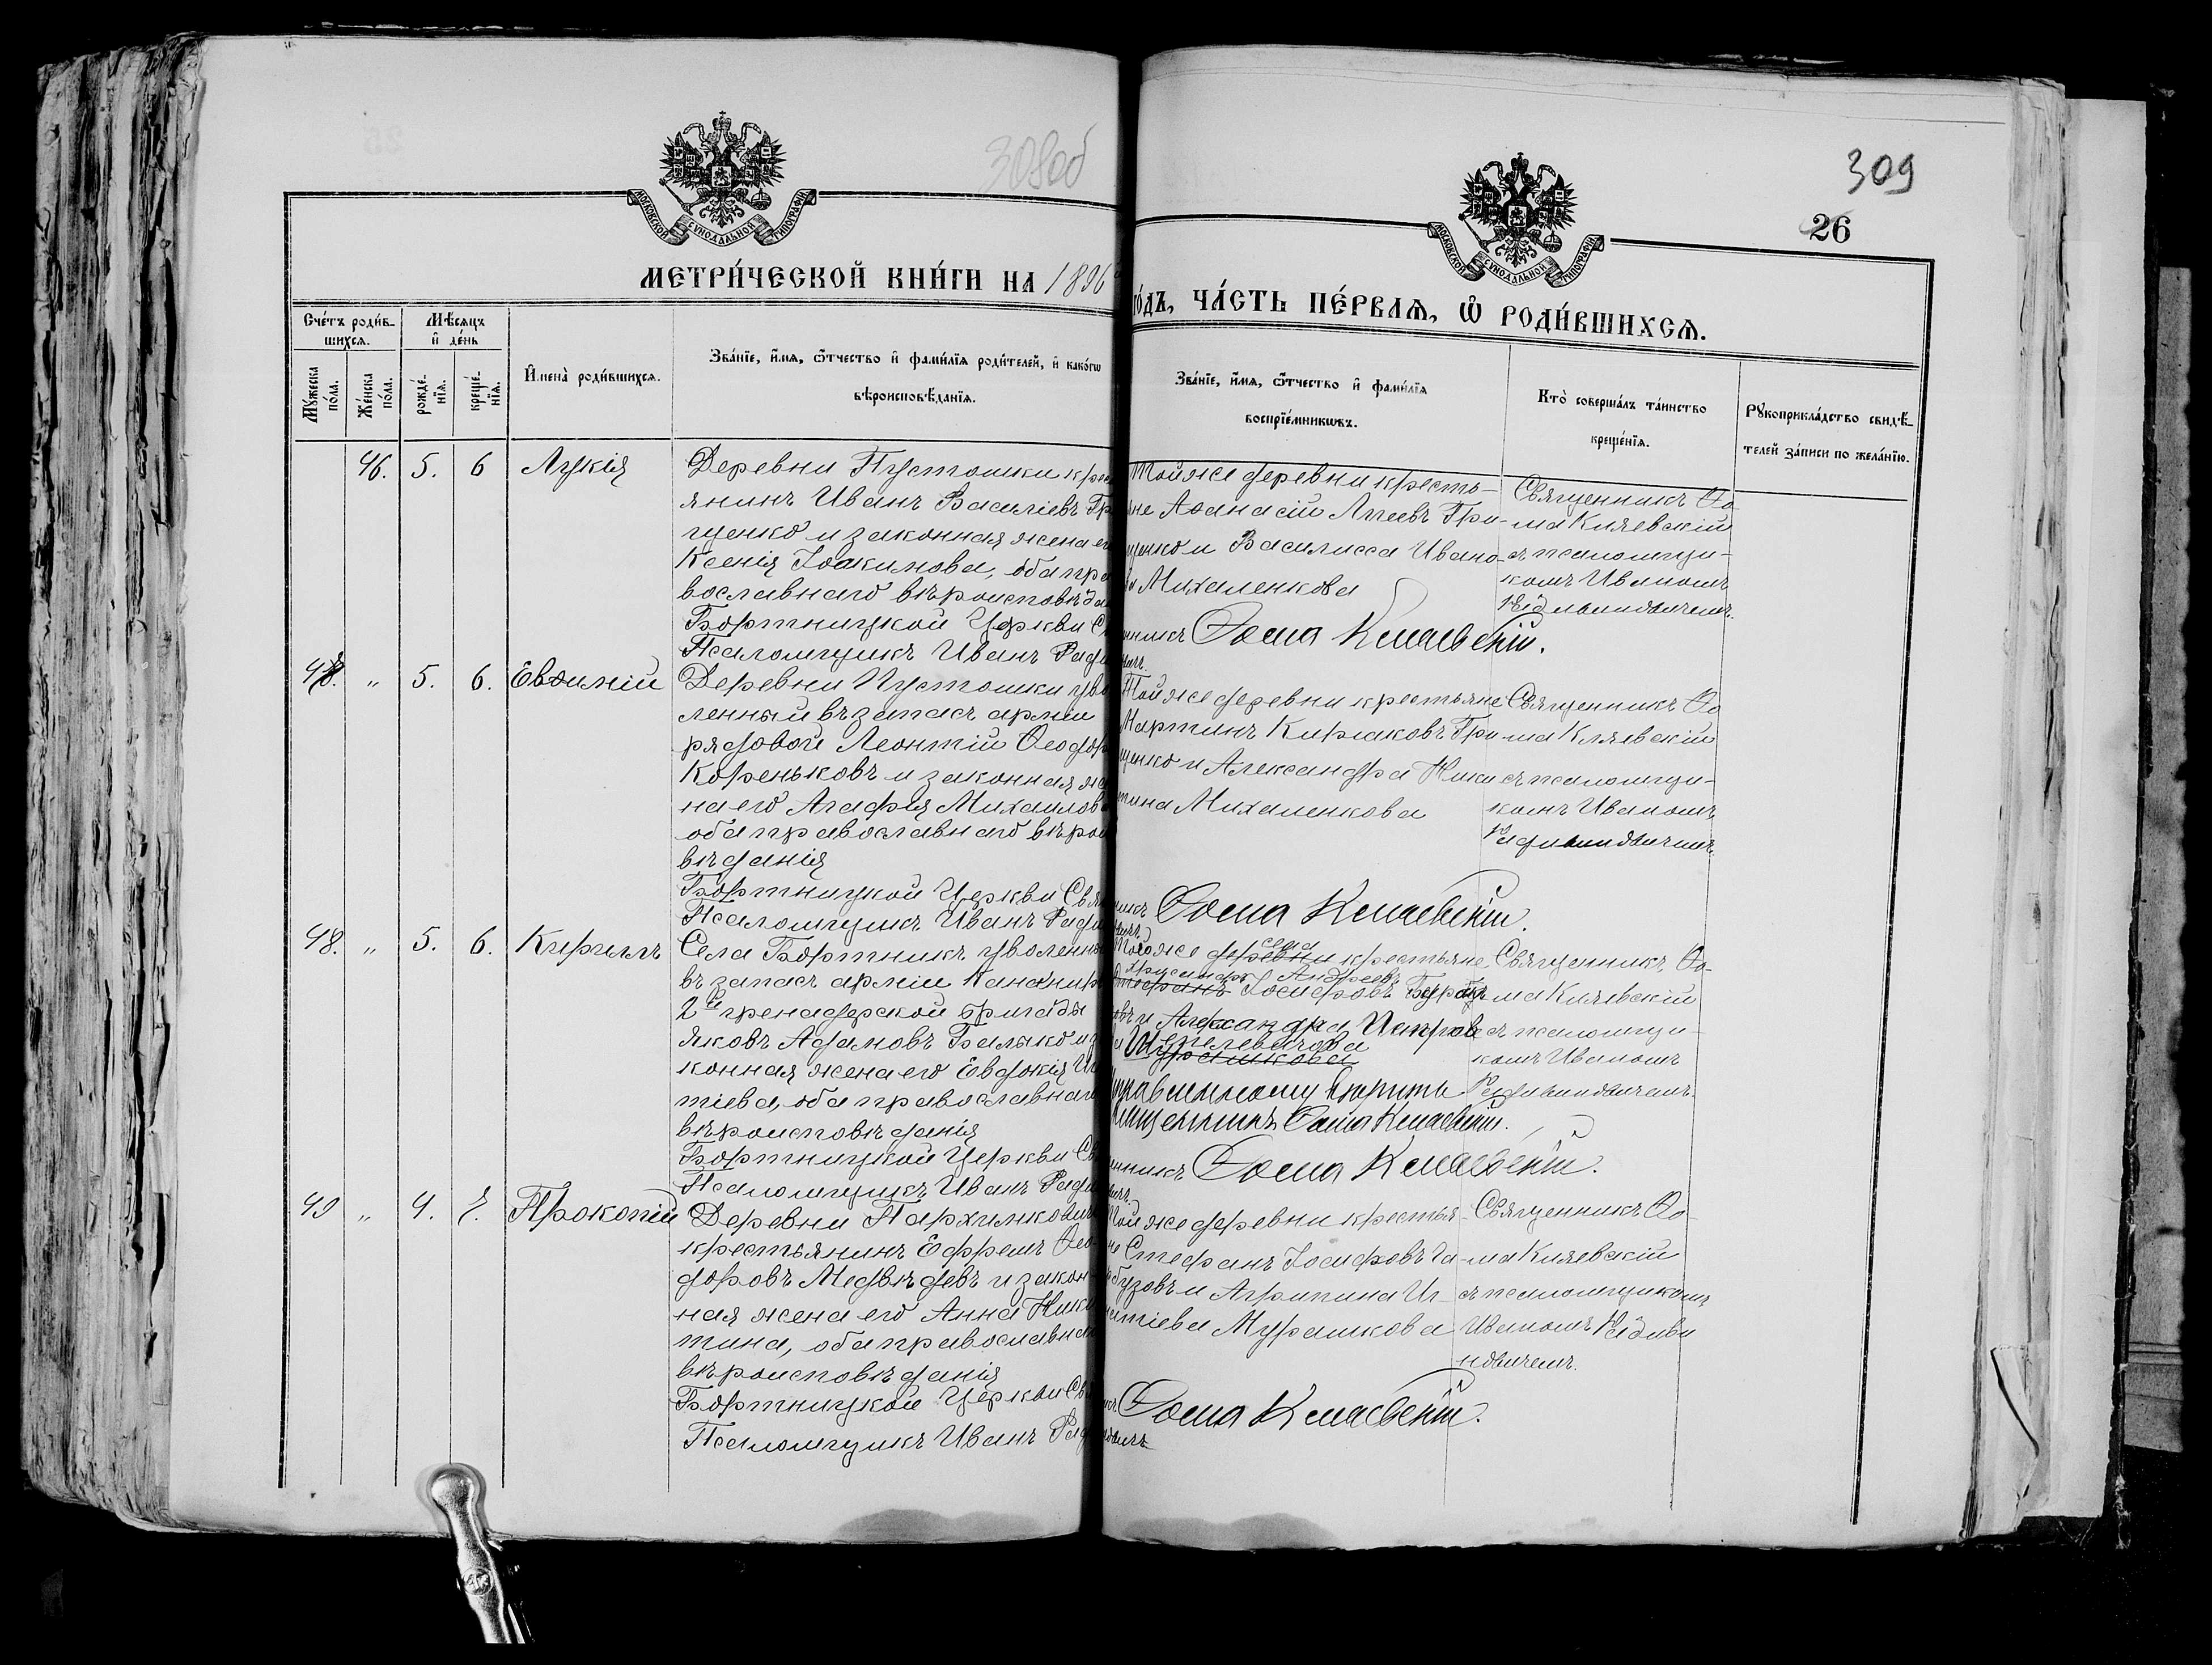 308об
309
26
МОСКОВСКОЙ СѴНОДАЛЬНОЙ ТИПОГРАФІИ
МОСКОВСКОЙ СѴНОДАЛЬНОЙ ТИПОГРАФІИ
МЕТРИ́ЧЕСКОЙ КНИ́ГИ НА 1896
го́дъ, ЧА́СТЬ ПЕ́РВАѦ, Ѡ҆ РОДИ́ВШИХСѦ.
Сче́тъ роди́в-
шихсѧ.
Мѣ́сѧцъ
и҆ де́нь
Мꙋ́жеска
по́ла.
Же́нска
по́ла.
рожде́-
нїѧ.
креще́-
нїѧ.
И҆мена̀ роди́вшихсѧ.
Зва́нїе, и҆́мѧ, ѻ҆́тчество и҆ фамн́лїѧ роди́телей, и҆ како́гѡ
вѣроисповѣ́данїѧ.
Зва́нїе, и҆́мѧ, ѻ҆́тчество и҆ фами́лїѧ
воспрїе́мникѡвъ.
Кто̀ соверша́лъ та́инство
креще́нїѧ.
Рꙋкоприкла́дство свидѣ́-
телей за́писи по жела́нїю.
46. 5. 6 Лукія
Деревни Пустошки кре
янинъ Иванъ Василіевъ Гр
щенко и законная жена ег
Ксенія Іоакимова, оба пра
вославнаго вѣроисповѣда
Бортницкой Церкви С
Псаломщикъ Иванъ Рад
Той же деревни кресть-
яне Аѳанасій Аггеевъ Гри-
щенко и Василисса Ивано-
ва Михаленкова
нникъ Ѳома Кляевскій.
Священникъ Ѳо-
ма Кляевскій
съ псаломщи-
комъ Иваномъ
48. „ 5. 6. Евѳимій
Деревни Пустошки уво
ленный въ запасъ арміи
рядовой Леонтій Ѳеодор
Кореньковъ и законная же
на его Агафія Михаилов
оба православнаго вѣрои
вѣданія
Бортницкой Церкви Свя
Псаломщикъ Иванъ Рад
Той же деревни крестьяне
Мартинъ Киріаковъ Гри
щенко и Александра Ники
тина Михаленкова
никъ Ѳома Кляевскій.
Священникъ Ѳо
ма Кляевскій
съ псаломщи-
комъ Иваномъ
48. „ 5. 6. Кириллъ
Села Бортникъ уволенны
въ запасъ арміи Канонир
2й гренадерской бригады
Яковъ Адамовъ Балыко и з
конная жена его Евдокія Иг
тіева, оба православнаго
вѣроисповѣданія
Бортницкой Церкви Св
Псаломщикъ Иванъ Рад
Того же деревни села крестьяне
Андреевъ
Стефанъ Іосифовъ
и Александра Петрова
Мурашкова
правленному вѣрить
Священникъ Ѳома Кляевскій.
нникъ Ѳома Кляевскій.
Священникъ Ѳо-
ма Кляевскій
съ псаломщи-
комъ Иваномъ
49 „ 4. 7. Прокопій
Деревни Пархимкович
крестьянинъ Ефремъ Ѳео-
доровъ Медвѣдевъ и закон-
ная жена его Анна Ники
тина, оба православнаг
вѣроисповѣданія
Бортницкой Церкви Св
Псаломщикъ Иванъ Рад
Той же деревни крестья-
не Стефанъ Іосифовъ Га-
бузовъ и Агрипина Иг-
натіева Мурашкова
Ѳома Кляевскій.
Священникъ Ѳо-
ма Кляевскій
съ псаломщикомъ
Иваномъ